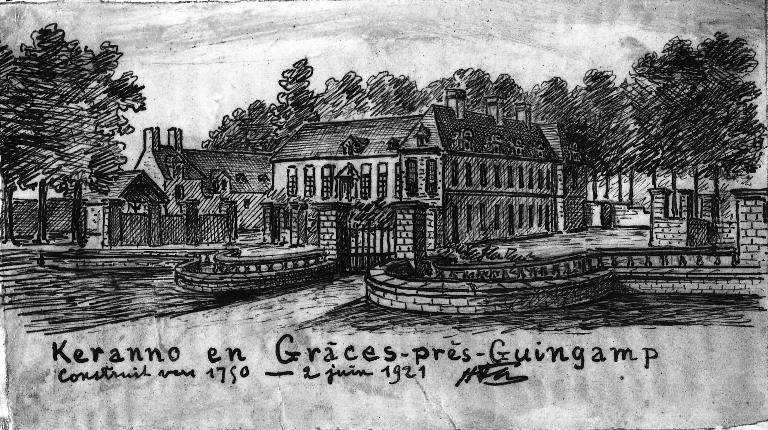 Keranno en Grâces-près-Guingamp
Construit vers 1750 — 2 juin 1921